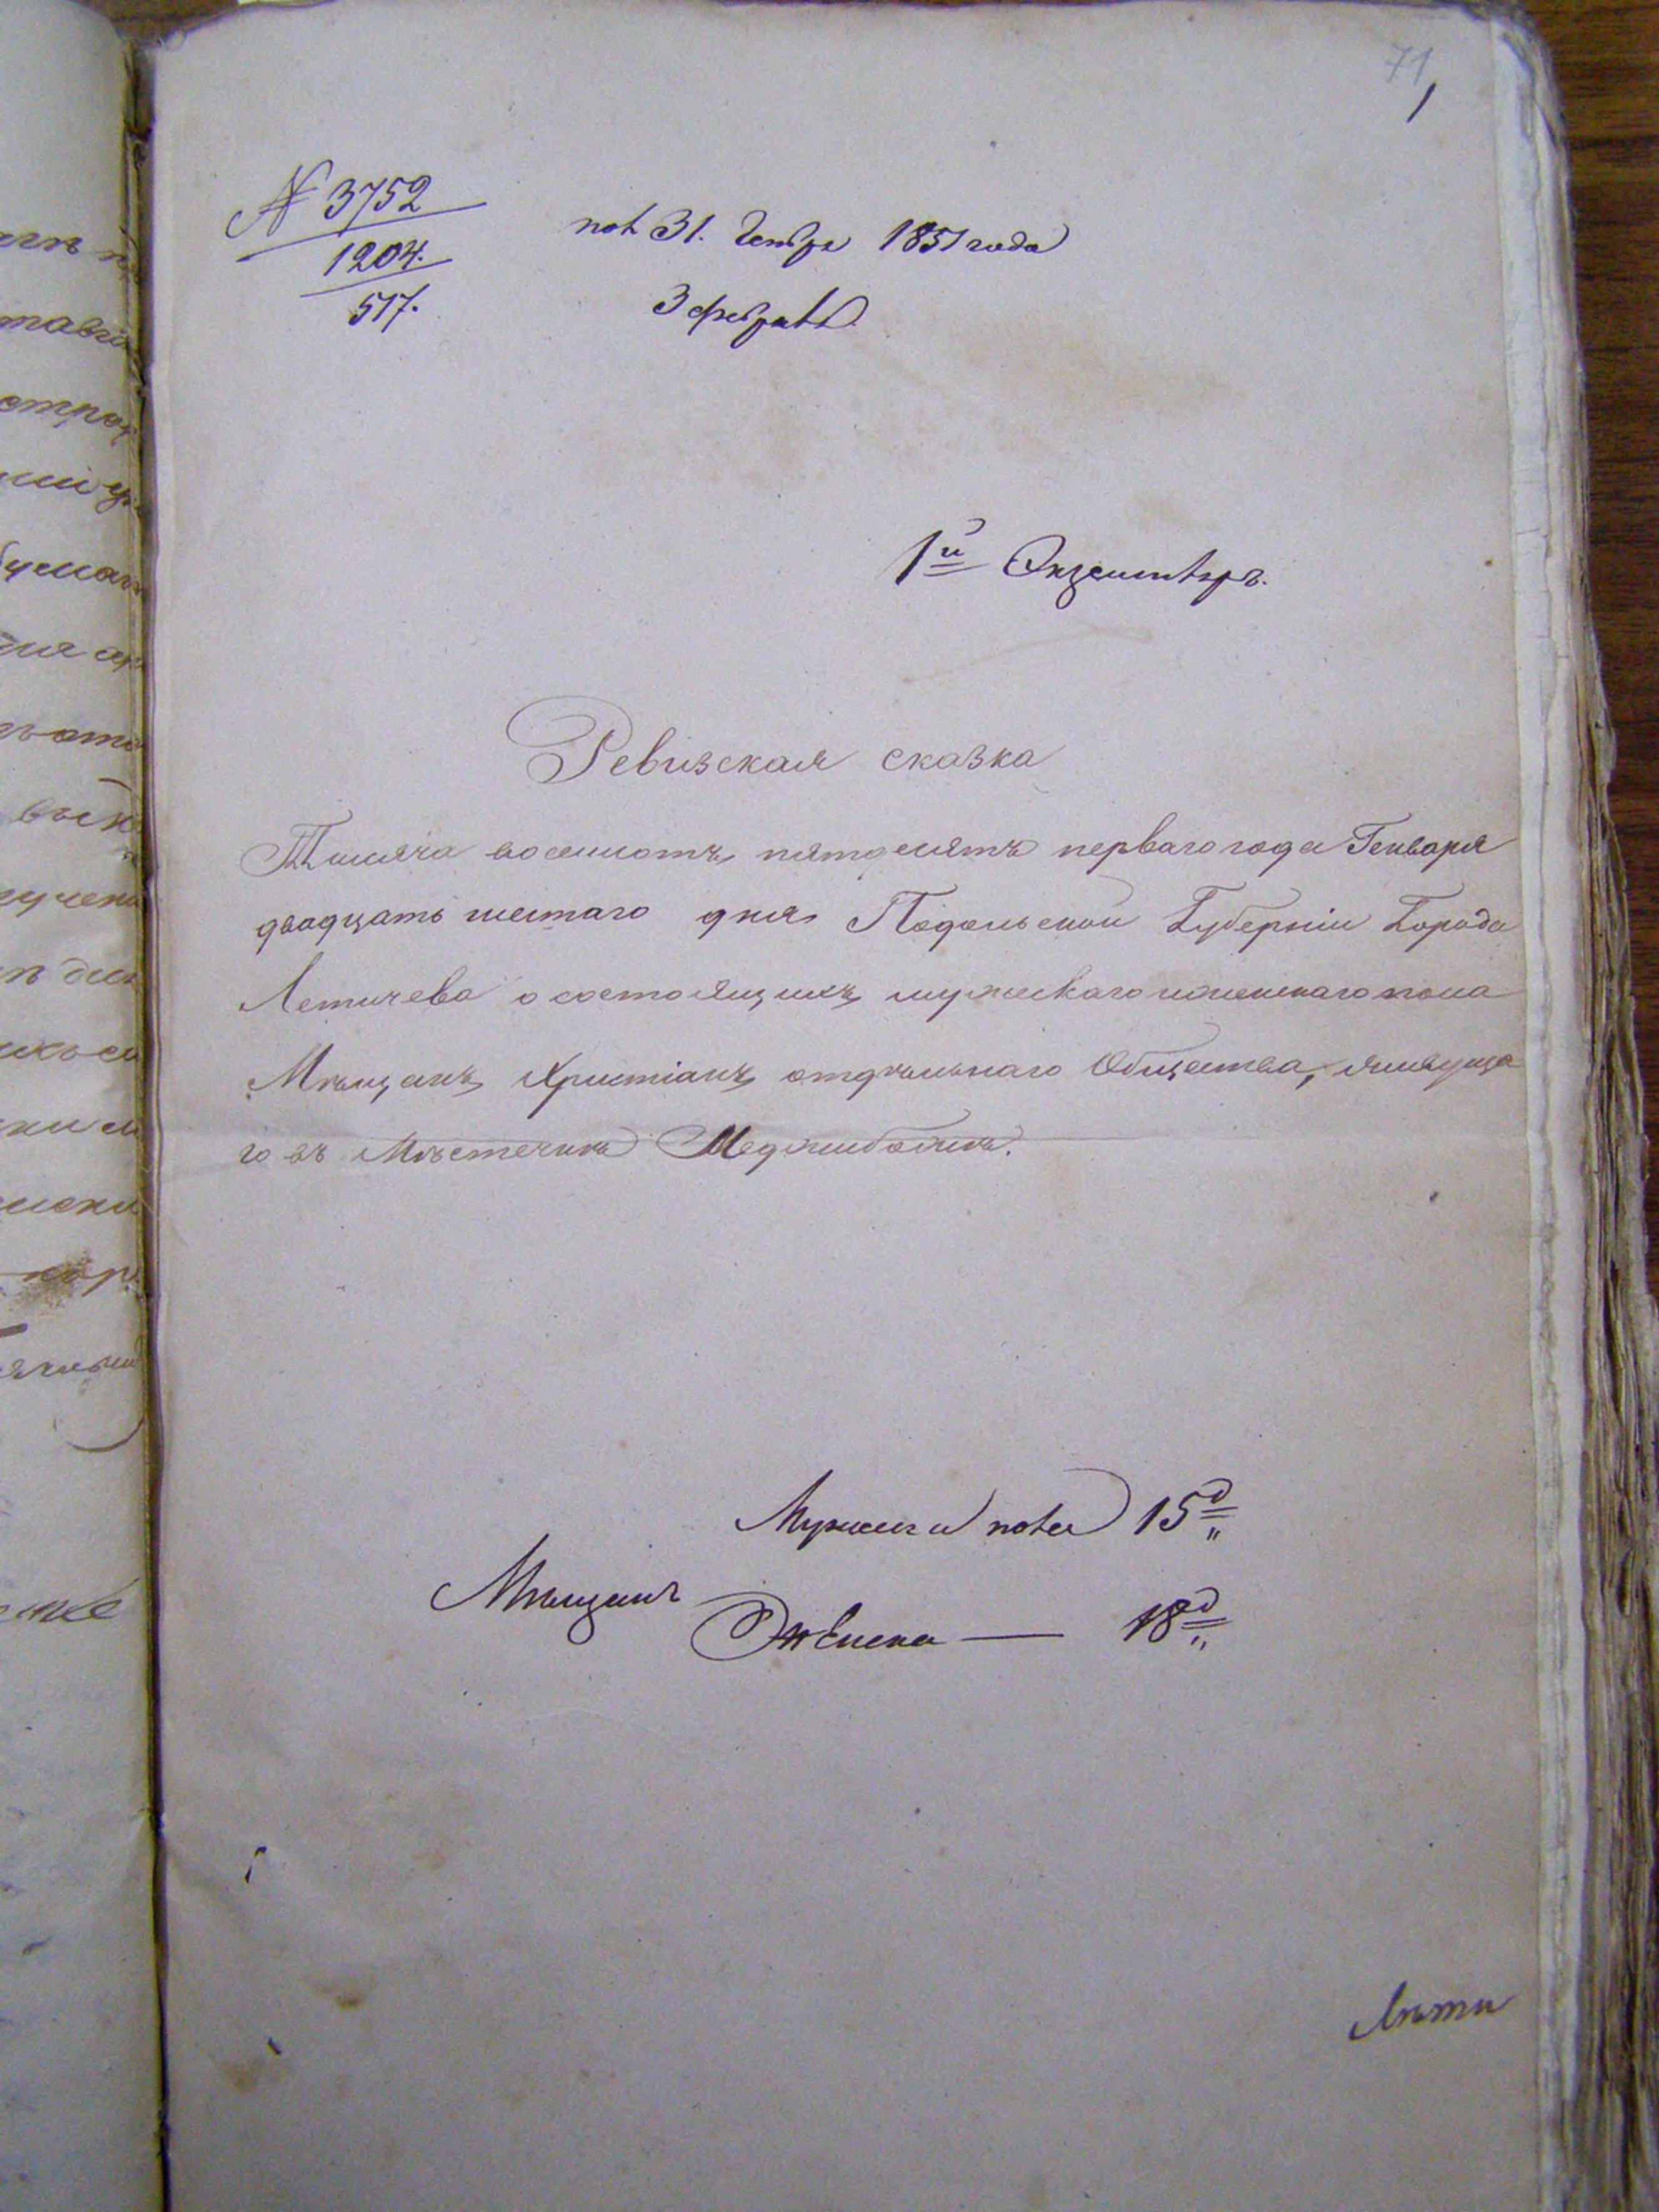 71
1
№ 3752
1204.
517.
пол 31. Генвря 1851 года
3 февраля
1й Экземпляръ.
Ревизская сказка
Тысяча восемсотъ пятдесятъ перваго года Генваря
двадцать шестаго дня Подольской Губерніи Города
Летичева о состоящихъ мужескаго и женскаго пола
Мѣщанъ Христіанъ отдѣльнаго Общества, живуща
го въ Мѣстечкѣ Меджибожѣ.
Мужеска пола 15д
Мѣщанъ
Женска — 18д